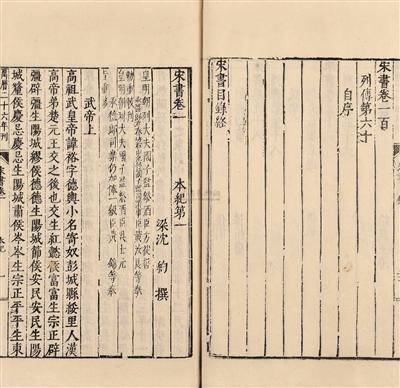 宋書卷一百
列傳第六十
自序
宋書目錄終
宋書卷一 本紀第一
梁沈約撰
皇明朝列大夫國子監祭酒臣方從哲
勅重校刊
皇明朝列大夫國子監祭酒臣吳士元
承德郎司業仍加俸一級臣黃錦等奉
旨重修
武帝上
高祖武皇帝諱裕字德輿小名寄奴彭城縣綏里人漢
高帝弟楚元王交之後也交生紅懿侯富富生宗正辟
彊辟彊生陽城繆侯德德生陽城節侯安民安民生陽
城釐侯慶忌慶忌生陽城肅侯岑岑生宗正平平生東
萬曆二十六年刊 宋書卷一 本紀